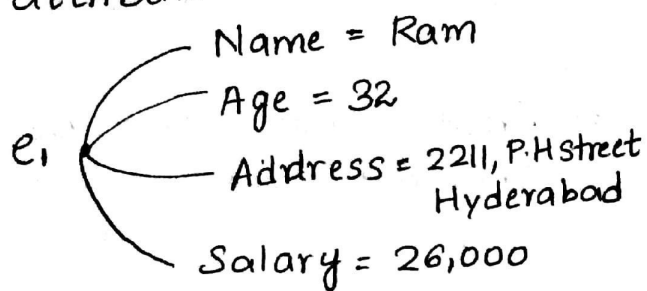 Name = Ram
Age = 32
e₁
Address = 2211, P.H street
Hyderabad
Salary = 26,000